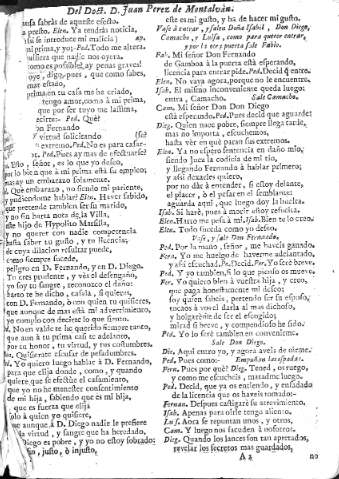 Del Doct. D. Juan Perez de Montalván.
usa sabrás de aqueste efecto.
presto. Elen. Ya tendrás noticia,
si se introduce mi malicia)
mi prima, y yo; Ped. Todo me altera.
como es posible) ay penas graves!
digo, pues, que como sabes,
prima, en tu casa me he criado,
tengo amor, como à mi prima,
que por ser tuyo me lastima.
Ped. Què?
Don Fernando
virtud solicitando
extremo. Ped. No es para casar-
Ped. Pues ay mas de efectuarse?
Esso, señor, es lo que yo deseo,
por lo bien que à mi prima està su empleo;
mas ay un embarazo solamente.
Que embarazo, no siendo mi pariente,
y pudiendome hablar? Elen. Haver sabido,
que pretende tambien ser su marido,
y no sin harta nota de la Villa,
este hijo de Hypolito Mansilla,
y no querer con nadie competencia
hasta saber tu gusto, y tu licencia;
de cuya dilacion resultar puede,
como siempre sucede,
peligro en D. Fernando, y en D. Diego.
Tu eres prudente, y vès el desengaño,
yo soy tu sangre, reconozco el daño:
harto te he dicho, casala, si quisieres,
con D. Fernando, ò con quien tu quisieres,
que aunque de mas està mi advertimiento,
yo cumplo con decirte lo que siento.
No en valde te he querido siempre tanto,
que aun à tu prima casi te adelanto,
por tu honor, tu virtud, y tus costumbres.
Quisierate escusar de pesadumbres.
Yo quiero luego hablar à D. Fernando,
para que elija donde, como, y quando
quiere que se efectue el casamiento,
que yo no he menester consentimiento
de mi hija, sabiendo que es mi hija,
que es fuerza que elija
solo à quien yo quisiere,
aunque à D. Diego nadie le prefiere
en virtud, y sangre que ha heredado,
Diego es pobre, y yo no estoy sobrado;
fin, justo, ò injusto,
este es mi gusto, y ha de hacer mi gusto.
Vase à entrar, y salen Doña Isabèl, Don Diego,
Camacho, y Luisa, como para querer entrar,
y por la otra puerta sale Fabio.
Fab. Mi señor Don Fernando
de Gamboa à la puerta està esperando,
licencia para entrar pide. Ped. Decid que entre.
Elen. No vaya agora, porque no le encuentre.
Isab. El mismo inconveniente queda luego:
entra, Camacho. Sale Camacho.
Cam. Mi señor Don Diego
està esperando. Ped. Pues decid que aguarde:
Dieg. Quien nace pobre, siempre llega tarde,
mas no importa, escuchemos,
hasta vèr en què paran sus extremos.
Elen. Ya no espero sentencia en daño mio,
siendo Juez la codicia de mi tio,
y llegando Fernando à hablar primero;
y assi dexarlos quiero,
por no dàr à entender, si estoy delante,
el placer, ò el pesar en el semblante:
aguarda aqui, que luego doy la buelta.
Isab. Si harè, pues à morir estoy resuelta.
Elen. Harto me pesa à mì. Isab. Bien te lo creo.
Elen. Todo suceda como yo deseo.
Vase, y sale Don Fernando.
Ped. Por la mano, señor, me haveis ganado.
Fern. Yo me huelgo de haverme adelantado,
y assi escuchad. Ped. Decid. Fer. Yo serè breve.
Ped. Y yo tambien, si lo que pienso os mueve.
Fer. Yo quiero bien à vuestra hija, y creo,
que paga honestamente mi deseo:
soy quien sabeis, pretendo ser su esposo,
tocaos à vos el darla al mas dichoso,
y holgarème de ser el escogido;
mirad si breve, y compendioso he sido.
Ped. Yo lo serè tambien en convenirme.
Sale Don Diego.
Die. Aqui entro yo, y agora aveis de oirme.
Ped. Pues como- Empuñan las espadas.
Fern. Pues por què? Dieg. Teneð, os ruego,
y como me escucheis, matadme luego.
Ped. Decid, que ya os entiendo, y enfadado
de la licencia que os haveis tomado.
Fernan. Despues castigarè su atrevimiento.
Isab. Apenas para oirle tengo aliento.
Lui. Aora se repuntan unos, y otros,
Cam. Y luego nos sacuden à nosotros.
Dieg. Quando los lances son tan apretados,
revelar los secretos mas guardados,
A 2 no